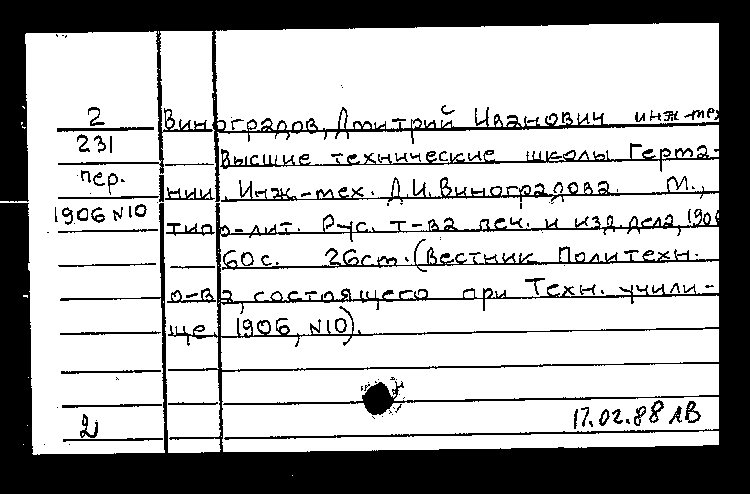 2 Виноградов, Дмитрий Иванович инж-тех
231 Высшие технические школы Герма-
пер. нии. Инж.-тех. Д.И.Виноградова. М.,
1906 N10 типо-лит. Рус. т-ва печ. и изд.дела, 1906
60с. 26cm. (Вестник Политехн.
о-ва, состоящего при Техн. учили-
ще. 1906, N10).
2 17.02.88 ЛВ